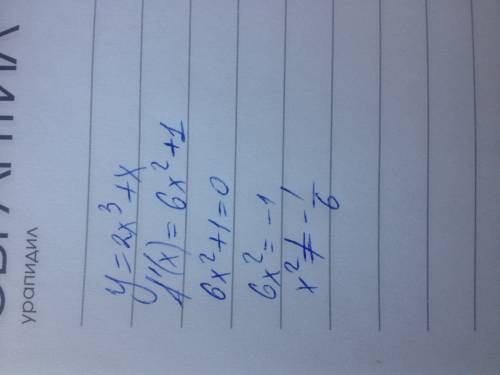 урапидил
y = 2x³ + x
y'(x) = 6x² + 1
6x² + 1 = 0
6x² = -1
x² ≠ -1/6